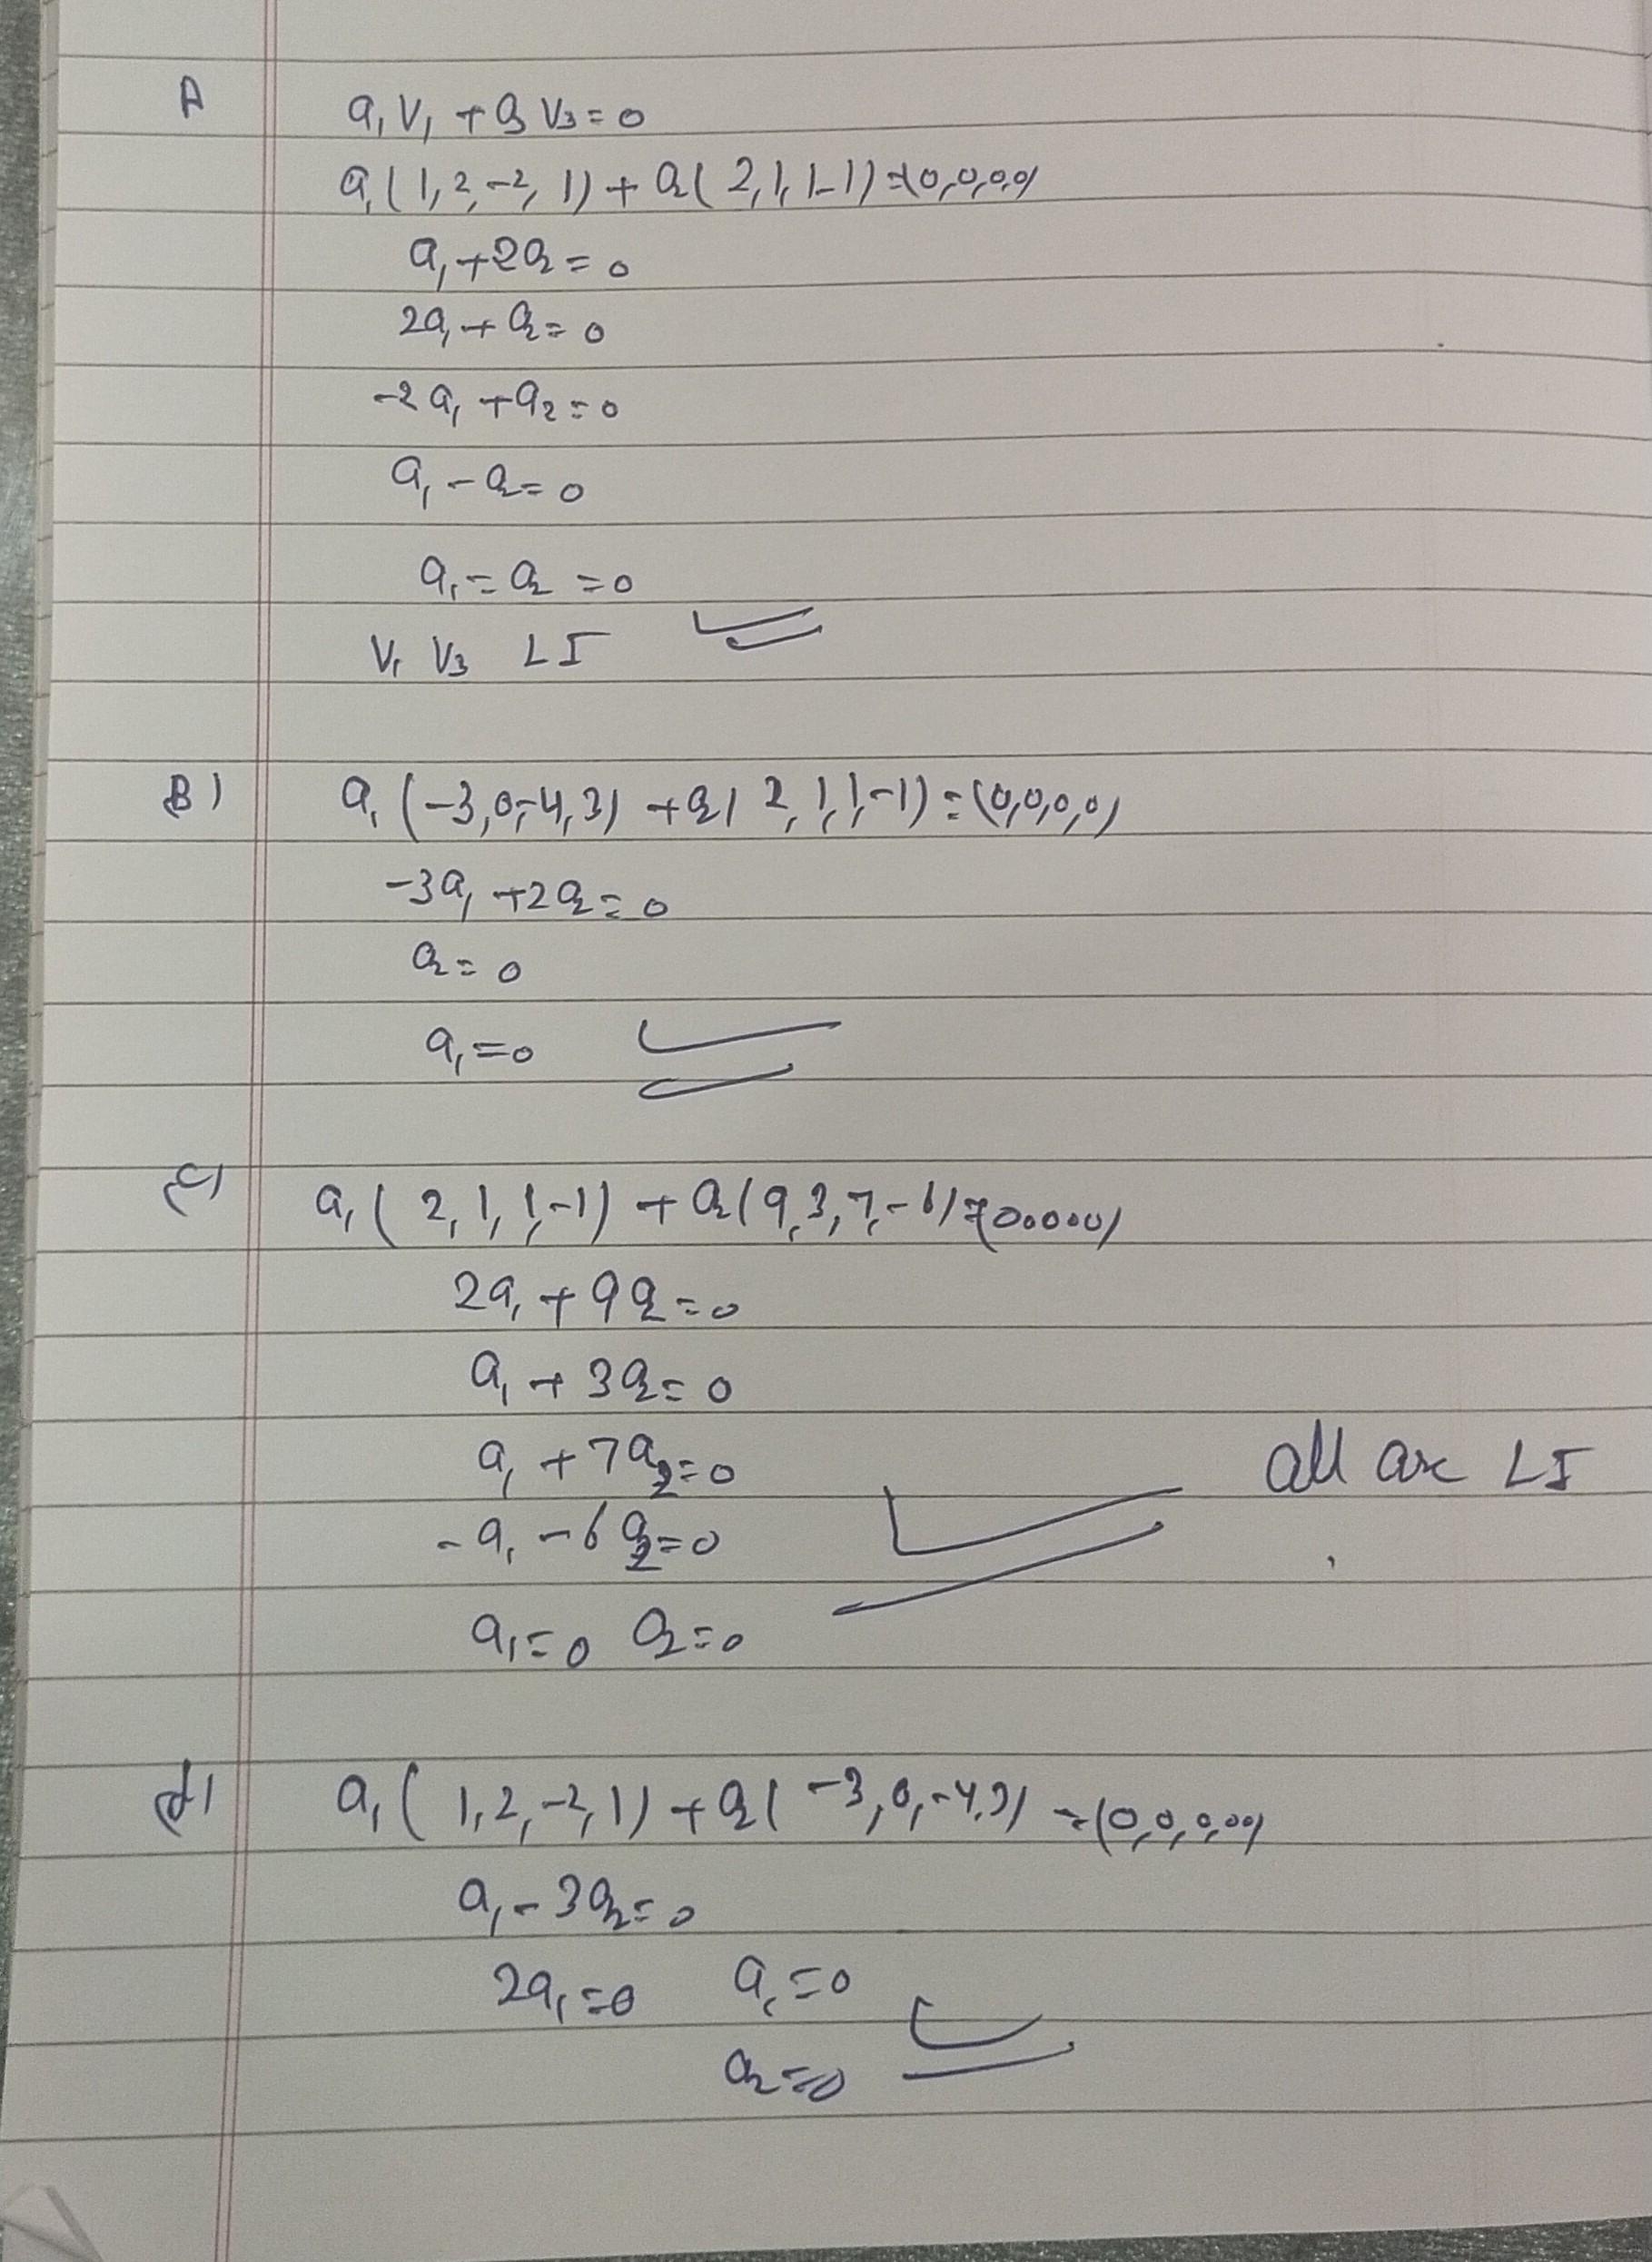 A
a₁ V₁ + a₃ V₃ = 0
a₁ ( 1, 2, -2, 1) + a₂ ( 2, 1, 1, -1) = (0,0,0,0)
a₁ + 2a₂ = 0
2a₁ + a₂ = 0
-2a₁ + a₂ = 0
a₁ - a₂ = 0
a₁ = a₂ = 0
V₁ V₃ LI
B) a₁ (-3, 0, -4, 3) + a₂ ( 2, 1, 1, -1) = (0,0,0,0)
-3a₁ + 2a₂ = 0
a₂ = 0
a₁ = 0
c) a₁ ( 2, 1, 1, -1) + a₂ ( 9, 3, 7, -6) = (0000)
2a₁ + 9a₂ = 0
a₁ + 3a₂ = 0
a₁ + 7a₂ = 0
all are LI
-a₁ - 6a₂ = 0
a₁ = 0 a₂ = 0
d) a₁ ( 1, 2, -2, 1) + a₂ ( -3, 0, -4, 3) = (0,0,0,0)
a₁ - 3a₂ = 0
2a₁ = 0 a₁ = 0
a₂ = 0